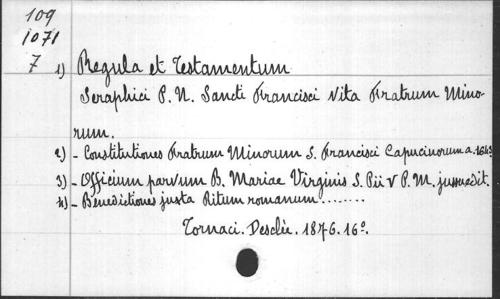 109
1071
7
1) Regula et Testamentum
Seraphici P. N. Sancti Francisci Vita Fratrum Mino-
rum.
2) - Constitutiones Fratrum Minorum S. Francisci Capucinorum a. 1643
3) - Officium parvum B. Mariae Virginis S. Pii V P. M. jussu edit.
4) - Benedictiones juxta Ritum romanum ........
Tornaci. Desclée. 1876. 16°.